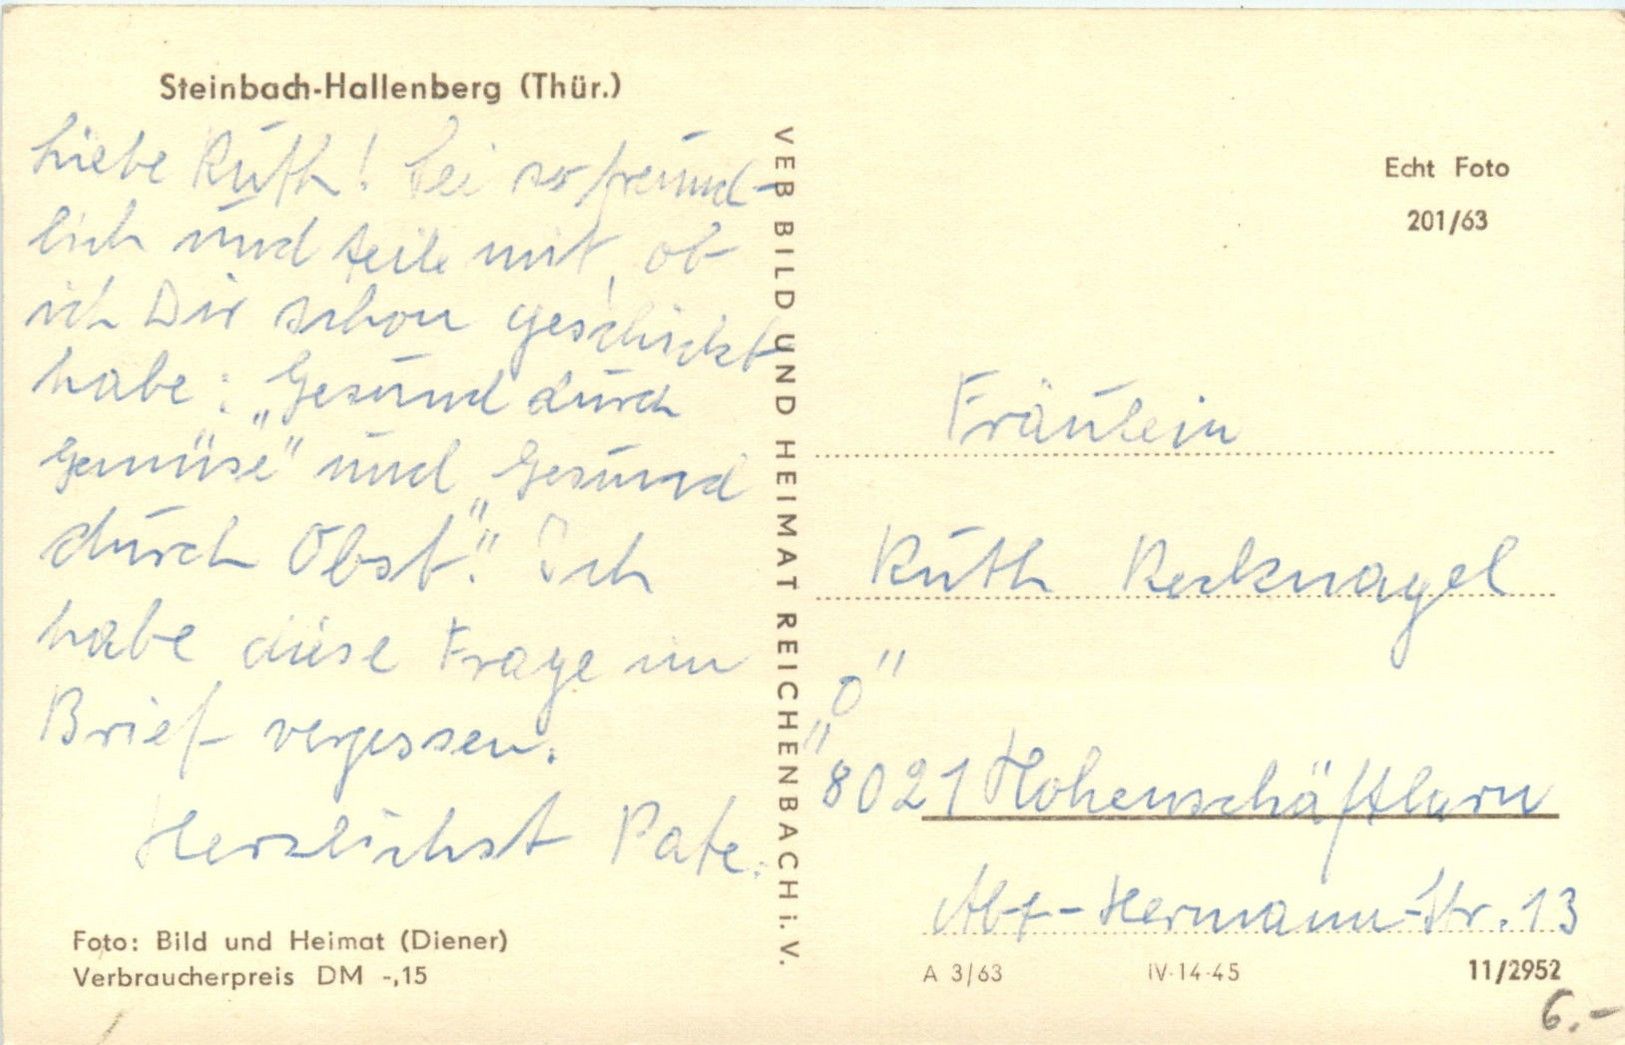 Steinbach-Hallenberg (Thür.)
Liebe Ruth! Sei so freund-
lich und teile mit, ob
ich Dir schon geschickt
habe: „Gesund durch
Gemüse" und „Gesund
durch Obst". Ich
habe diese Frage im
Brief vergessen.
Herzlichst Pate.
Foto: Bild und Heimat (Diener)
Verbraucherpreis DM -,15
VEB BILD UND HEIMAT REICHENBACH i. V.
Echt Foto
201/63
Fräulein
Ruth Recknagel
„O"
„8021 Hohenschäftlarn
Abt-Hermann-Str. 13
A 3/63 IV-14-45 11/2952
6.-